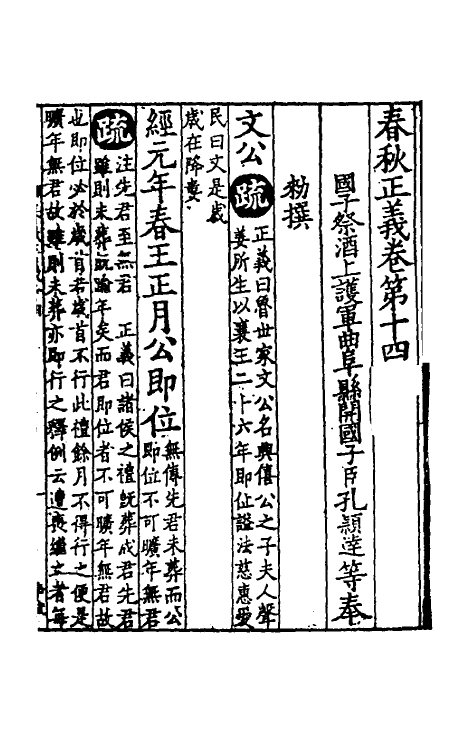 春秋正義卷第十四
國子祭酒上護軍曲阜縣開國子臣孔穎達等奉
勑撰
文公 疏 正義曰魯世家文公名興僖公之子夫人聲
姜所生以襄王二十六年即位謚法慈惠愛
民曰文是歲
歲在降婁
經元年春王正月公即位 無傳先君未葬而公
即位不可曠年無君
疏 注先君至無君 正義曰諸侯之禮既葬成君先君
雖則未葬既踰年矣而君即位者不可曠年無君故
也即位必於歲首若歲首不行此禮餘月不得行之便是
曠年無君故雖則未葬亦即行之釋例云遭喪繼立者每